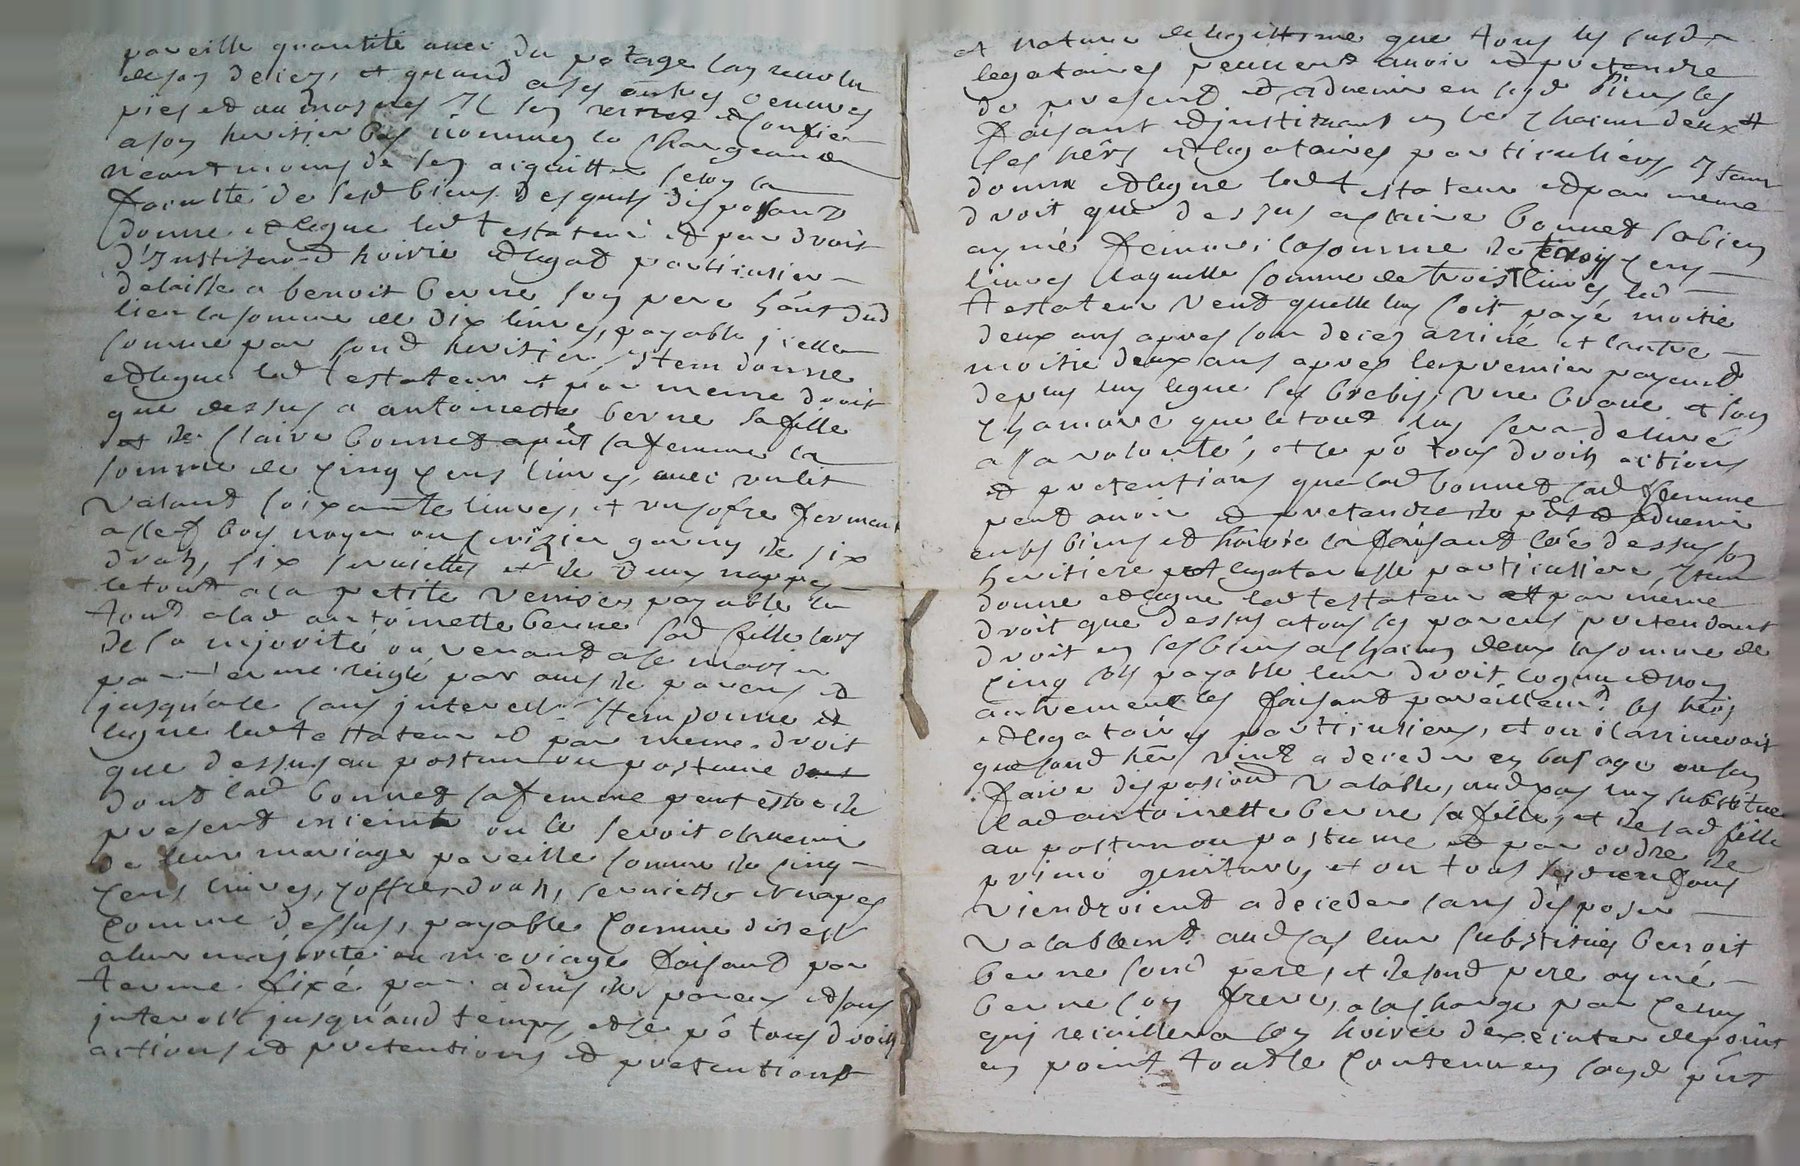 pareille quantité avec du potage lan revolu
de son deces, et quand a ses autres oeuvres
pies et aumosnes Il sen remet et confie
a son heritier bas nommé le chargeant
neantmoins de sen aquitter selon la
faculté de sesd biens desquels disposant
donne et legue led testateur et par droit
d'Institu'on d hoirie et legat particulier
delaisse a benoit berne son pere h'ant dud
lieu la somme de dix livres, payable jcelle
somme par sond heritier. Item donne
et legue led testateur et par meme droit
que dessus a antoinette berne sa fille
et de Claire bonnet sa femme la
somme de cinq cens livres, avec un lit
valant soixante livres, et un cofre fermant
a clef bois noyer ou cerizier garny de six
draps, six serviettes et de deux nappes
le tout a la petite venise, payable le
tout a lad antoinette berne sad fille lors
de sa majorité ou venant a se marier
par terme reiglé par avis de parens et
jusqu'a ce sans interest. Item donne et
legue led testateur et par meme droit
que dessus au postume ou postume
dont lad bonnet sa femme peut estre de
present enceinte ou le seroit a l'avenir
de leur mariage pareille somme de cinq
cens livres, coffre, draps, serviettes et napes
comme dessus, payable comme dit est
a leur majorité ou mariage faisant par
terme fixé par advis de parens et sans
interest jusqu'aud temps, et ce po' tous droits
actions et pretentions et pretentions
et nature de legittime que tous les susd
legataires peuvent avoir et pretendre
de present et a l'avenir en sesd biens les
faisant et instituant en ce chacun deux
ses he'rs et legataires particuliers, Item
donne et legue led testateur et par meme
droit que dessus a Claire bonnet sa bien
aymée femme la somme de trois cens
livres laquelle somme de trois livres led
testateur veut quelle luy soit payé moitie
deux ans apres son deces arrivé et l'autre
moitie deux ans apres le premier payement
de plus luy legue six brebis, une brave et son
chamaré que le tout luy sera delivré
a sa volonté, et ce po' tous droits actions
et pretentions que lad bonnet sad femme
peut avoir et pretendre de p'nt et advenir
en ses biens et hoirie la faisant
heritiere et legataresse particuliere, Item
donne et legue led testateur et par meme
droit que dessus a tous ses parens pretendant
droit en ses biens a chacun deux la somme de
cinq sols payable leur droit cognu et non
autrement les faisant pareillem.t ses he'rs
et legataires particuliers, et ou il arriveroit
que sond he'r vint a deceder en bas age ou sans
faire disposi'on valable, aud cas luy substitue
lad antoinette berne sa fille, et de sad fille
au postume ou postume et par ordre de
primo geniture, et ou tous ses enfans
viendroient a deceder sans disposer
valablem.t aud cas leur substitue benoit
berne sond pere, et de sond pere aymé
berne son frere, a la charge par celuy
qui recuillera son hoirie dexecuter de point
en point tout le contenu en son p'nt